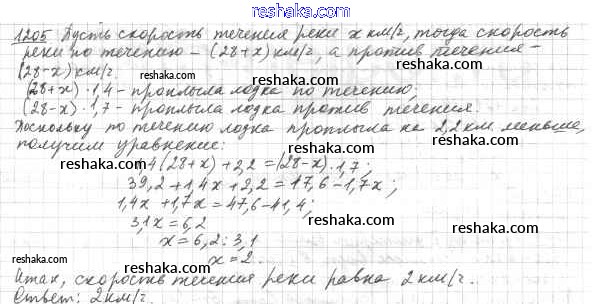 www.reshaka.com
1205 Пусть скорость течения реки x км/г, тогда скорость
реки по течению – (28+x) км/г, а против течения –
(28-x) км/г. reshaka.com
(28+x)·1,4 – проплыла лодка по течению; reshaka.com
(28-x)·1,7 – проплыла лодка против течения.
Поскольку по течению лодка проплыла на 2,2 км меньше,
получим уравнение:
reshaka.com 1,4(28+x)+2,2=(28-x)·1,7; reshaka.com
39,2+1,4x+2,2=47,6-1,7x;
1,4x+1,7x=47,6-41,4; reshaka.com
reshaka.com 3,1x=6,2
x=6,2:3,1 reshaka.com
reshaka.com x=2.
Итак, скорость течения реки равна 2 км/г.
Ответ: 2 км/г. reshaka.com reshaka.com